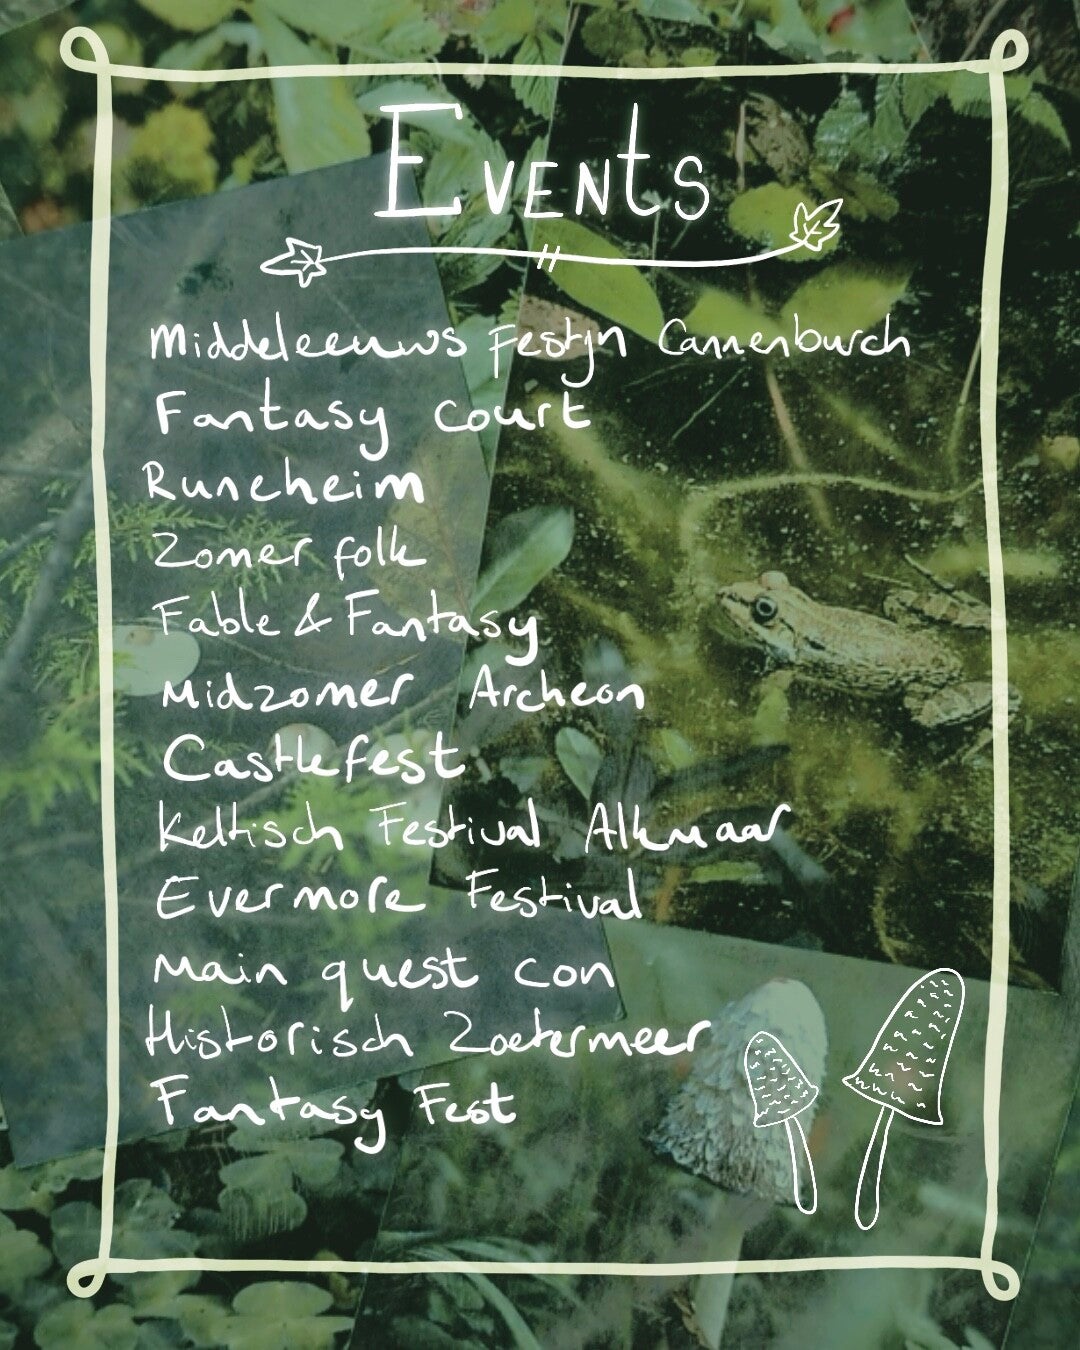 Events
Middeleeuws Festijn Cannenburch
Fantasy Court
Runeheim
Zomer folk
Fable & Fantasy
Midzomer Archeon
Castlefest
Keltisch Festival Alkmaar
Evermore Festival
Main quest con
Historisch Zoetermeer
Fantasy Fest